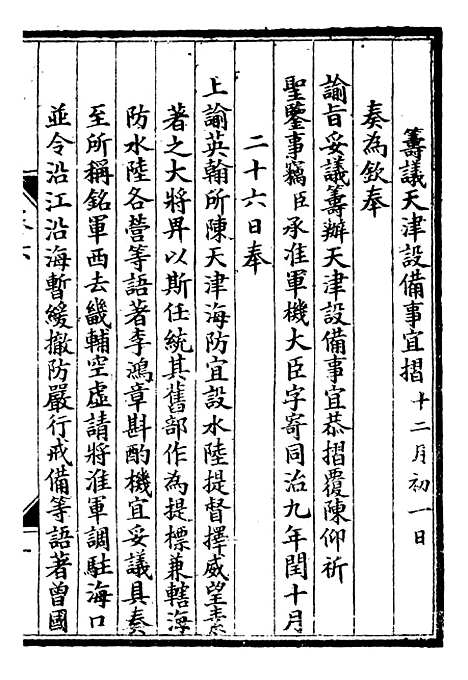 籌議天津設備事宜摺十二月初一日
奏為欽奉
諭旨妥議籌辦天津設備事宜恭摺覆陳仰祈
聖鑒事竊臣承准軍機大臣字寄同治九年閏十月
二十六日奉
上諭英翰所陳天津海防宜設水陸提督擇威望素
著之大將畀以斯任統其舊部作為提標兼轄海
防水陸各營等語著李鴻章斟酌機宜妥議具奏
至所稱銘軍西去畿輔空虛請將淮軍調駐海口
並令沿江沿海暫緩撤防嚴行戒備等語著曾國